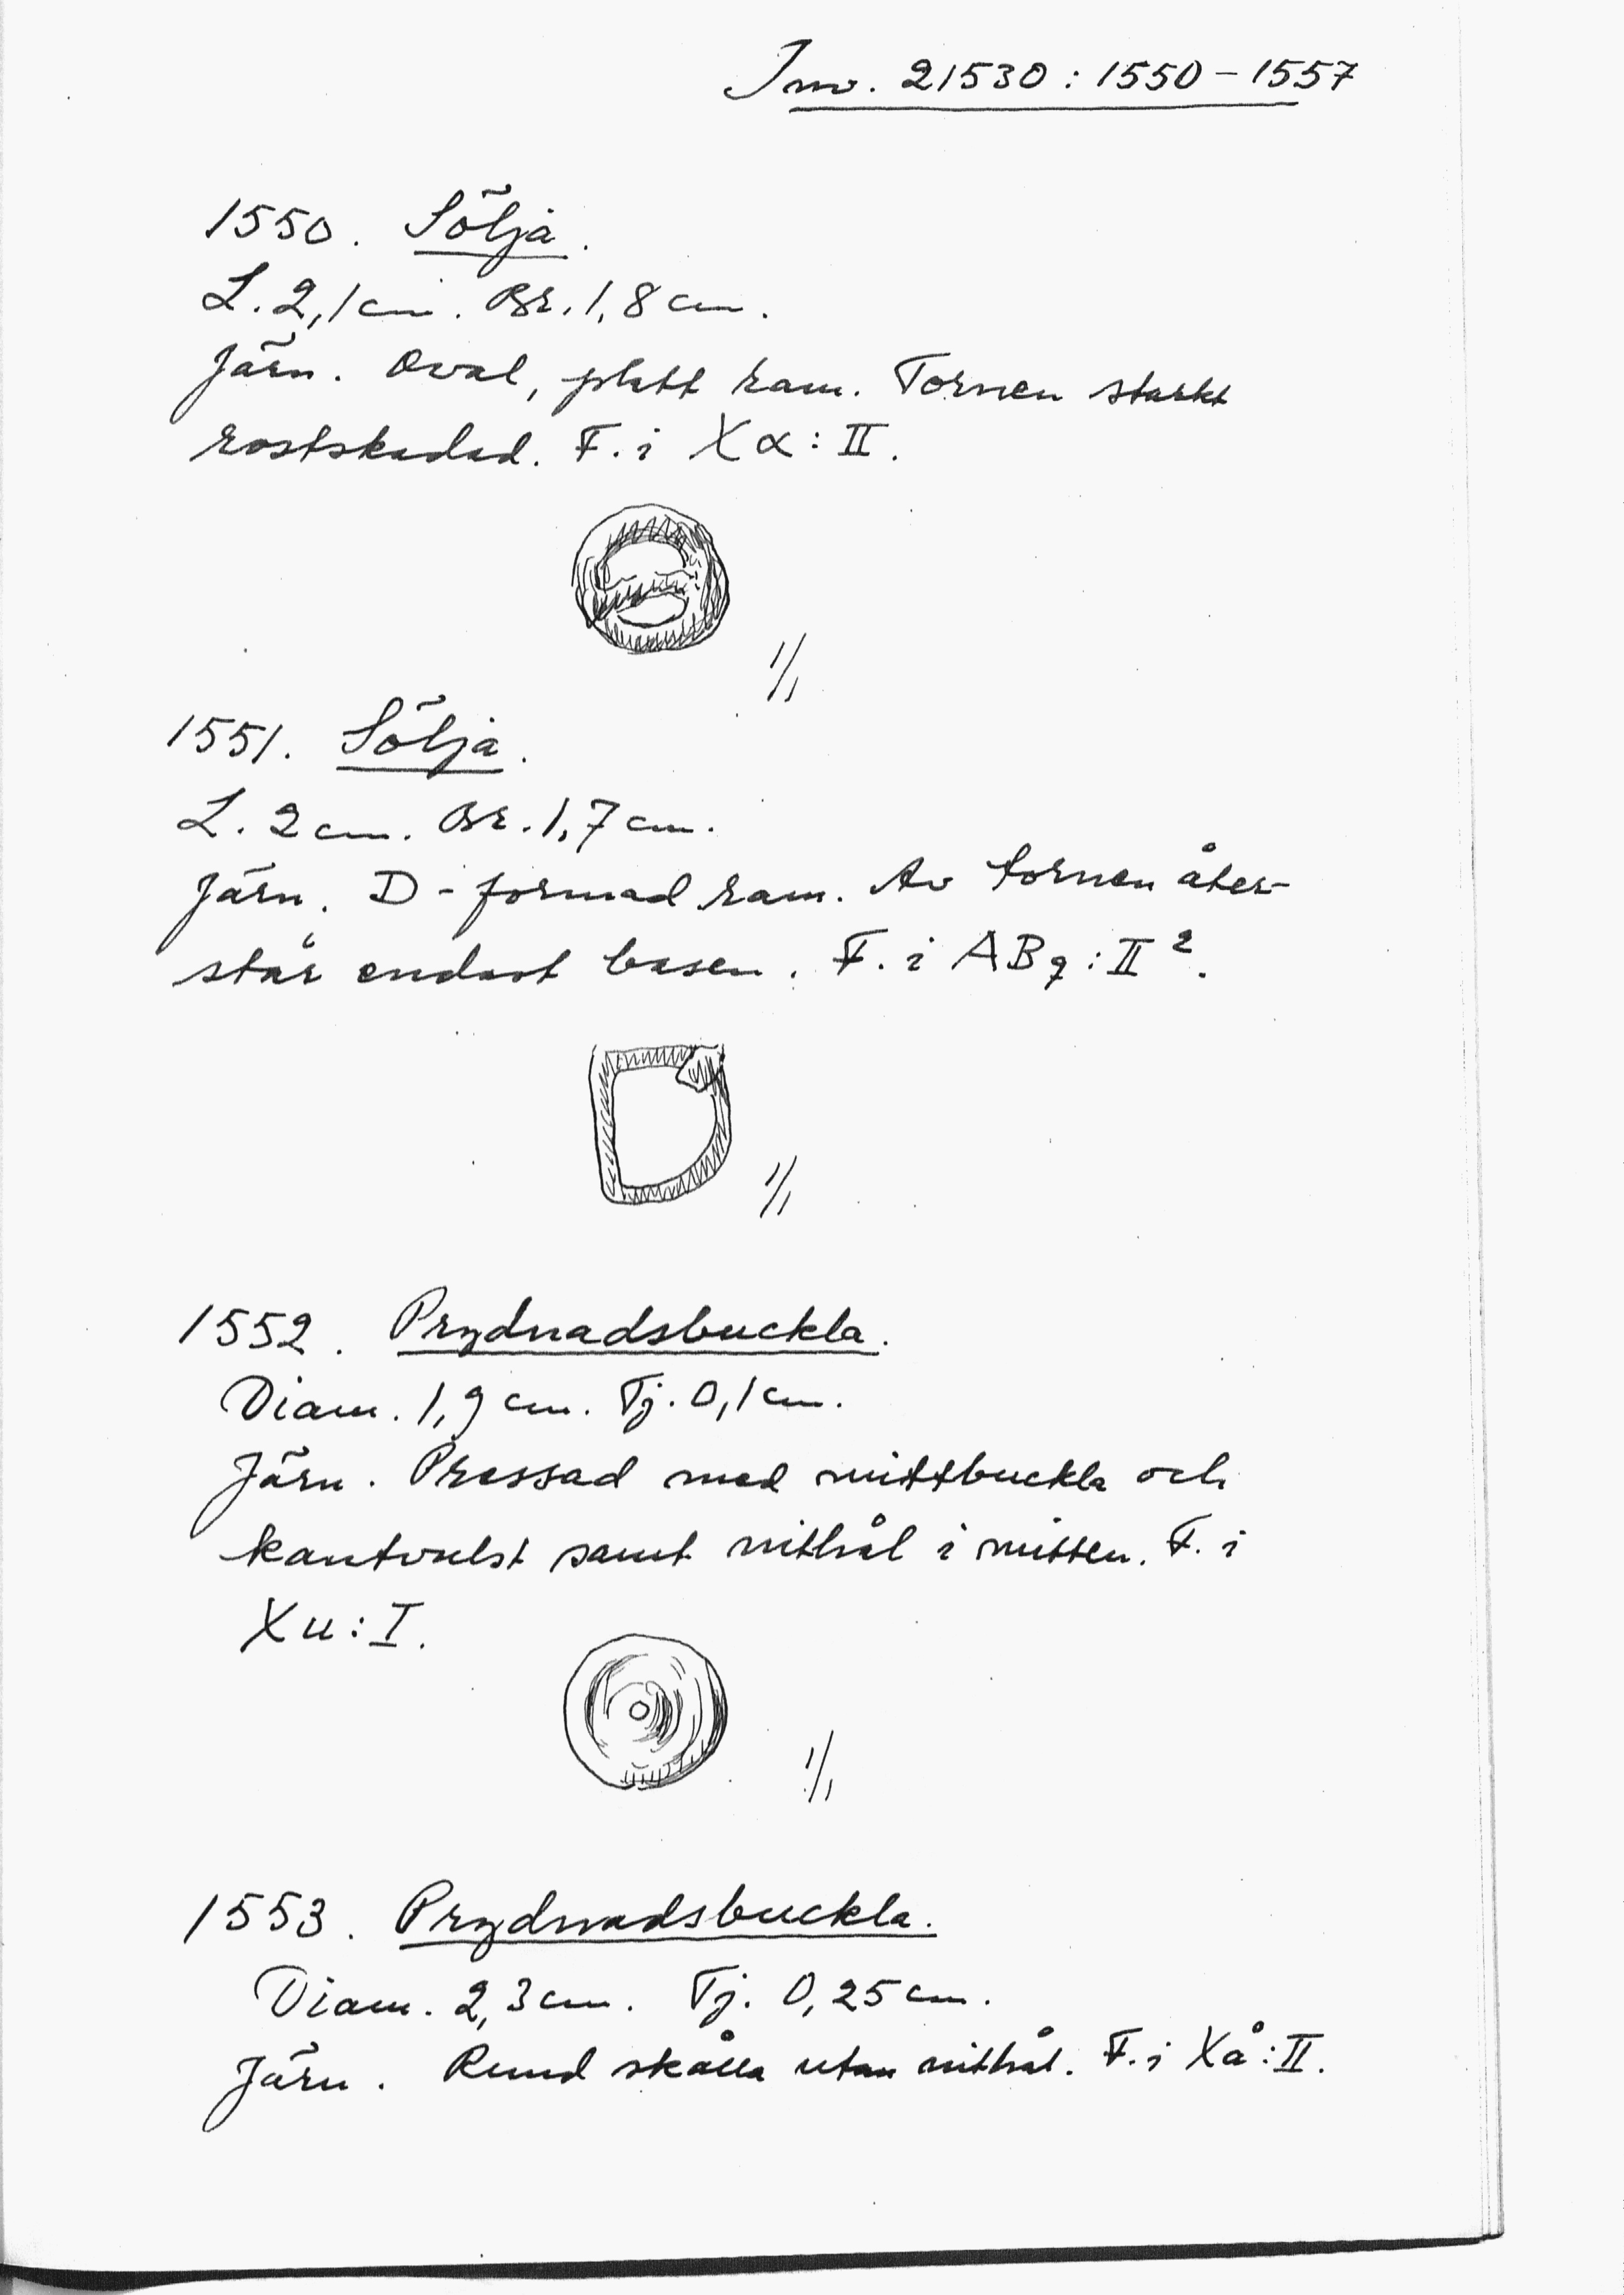 Inv. 21530 : 1550 – 1557
1550. Sölja.
L. 2,1 cm. Br. 1,8 cm.
Järn. Oval, platt ram. Tornen starkt
rostskadad. F. i Xα : II.
1/1
1551. Sölja.
L. 2 cm. Br. 1,7 cm.
Järn. D-formad ram. Av tornen åter-
står endast basen. F. i ABq : II².
1/1
1552. Prydnadsbuckla.
Diam. 1,9 cm. Tj. 0,1 cm.
Järn. Pressad med mittbuckla och
kantvulst samt nithål i mitten. F. i
Xu : I.
1/1
1553. Prydnadsbuckla.
Diam. 2,3 cm. Tj. 0,25 cm.
Järn. Rund skålla utan nithål. F. i Xå : II.